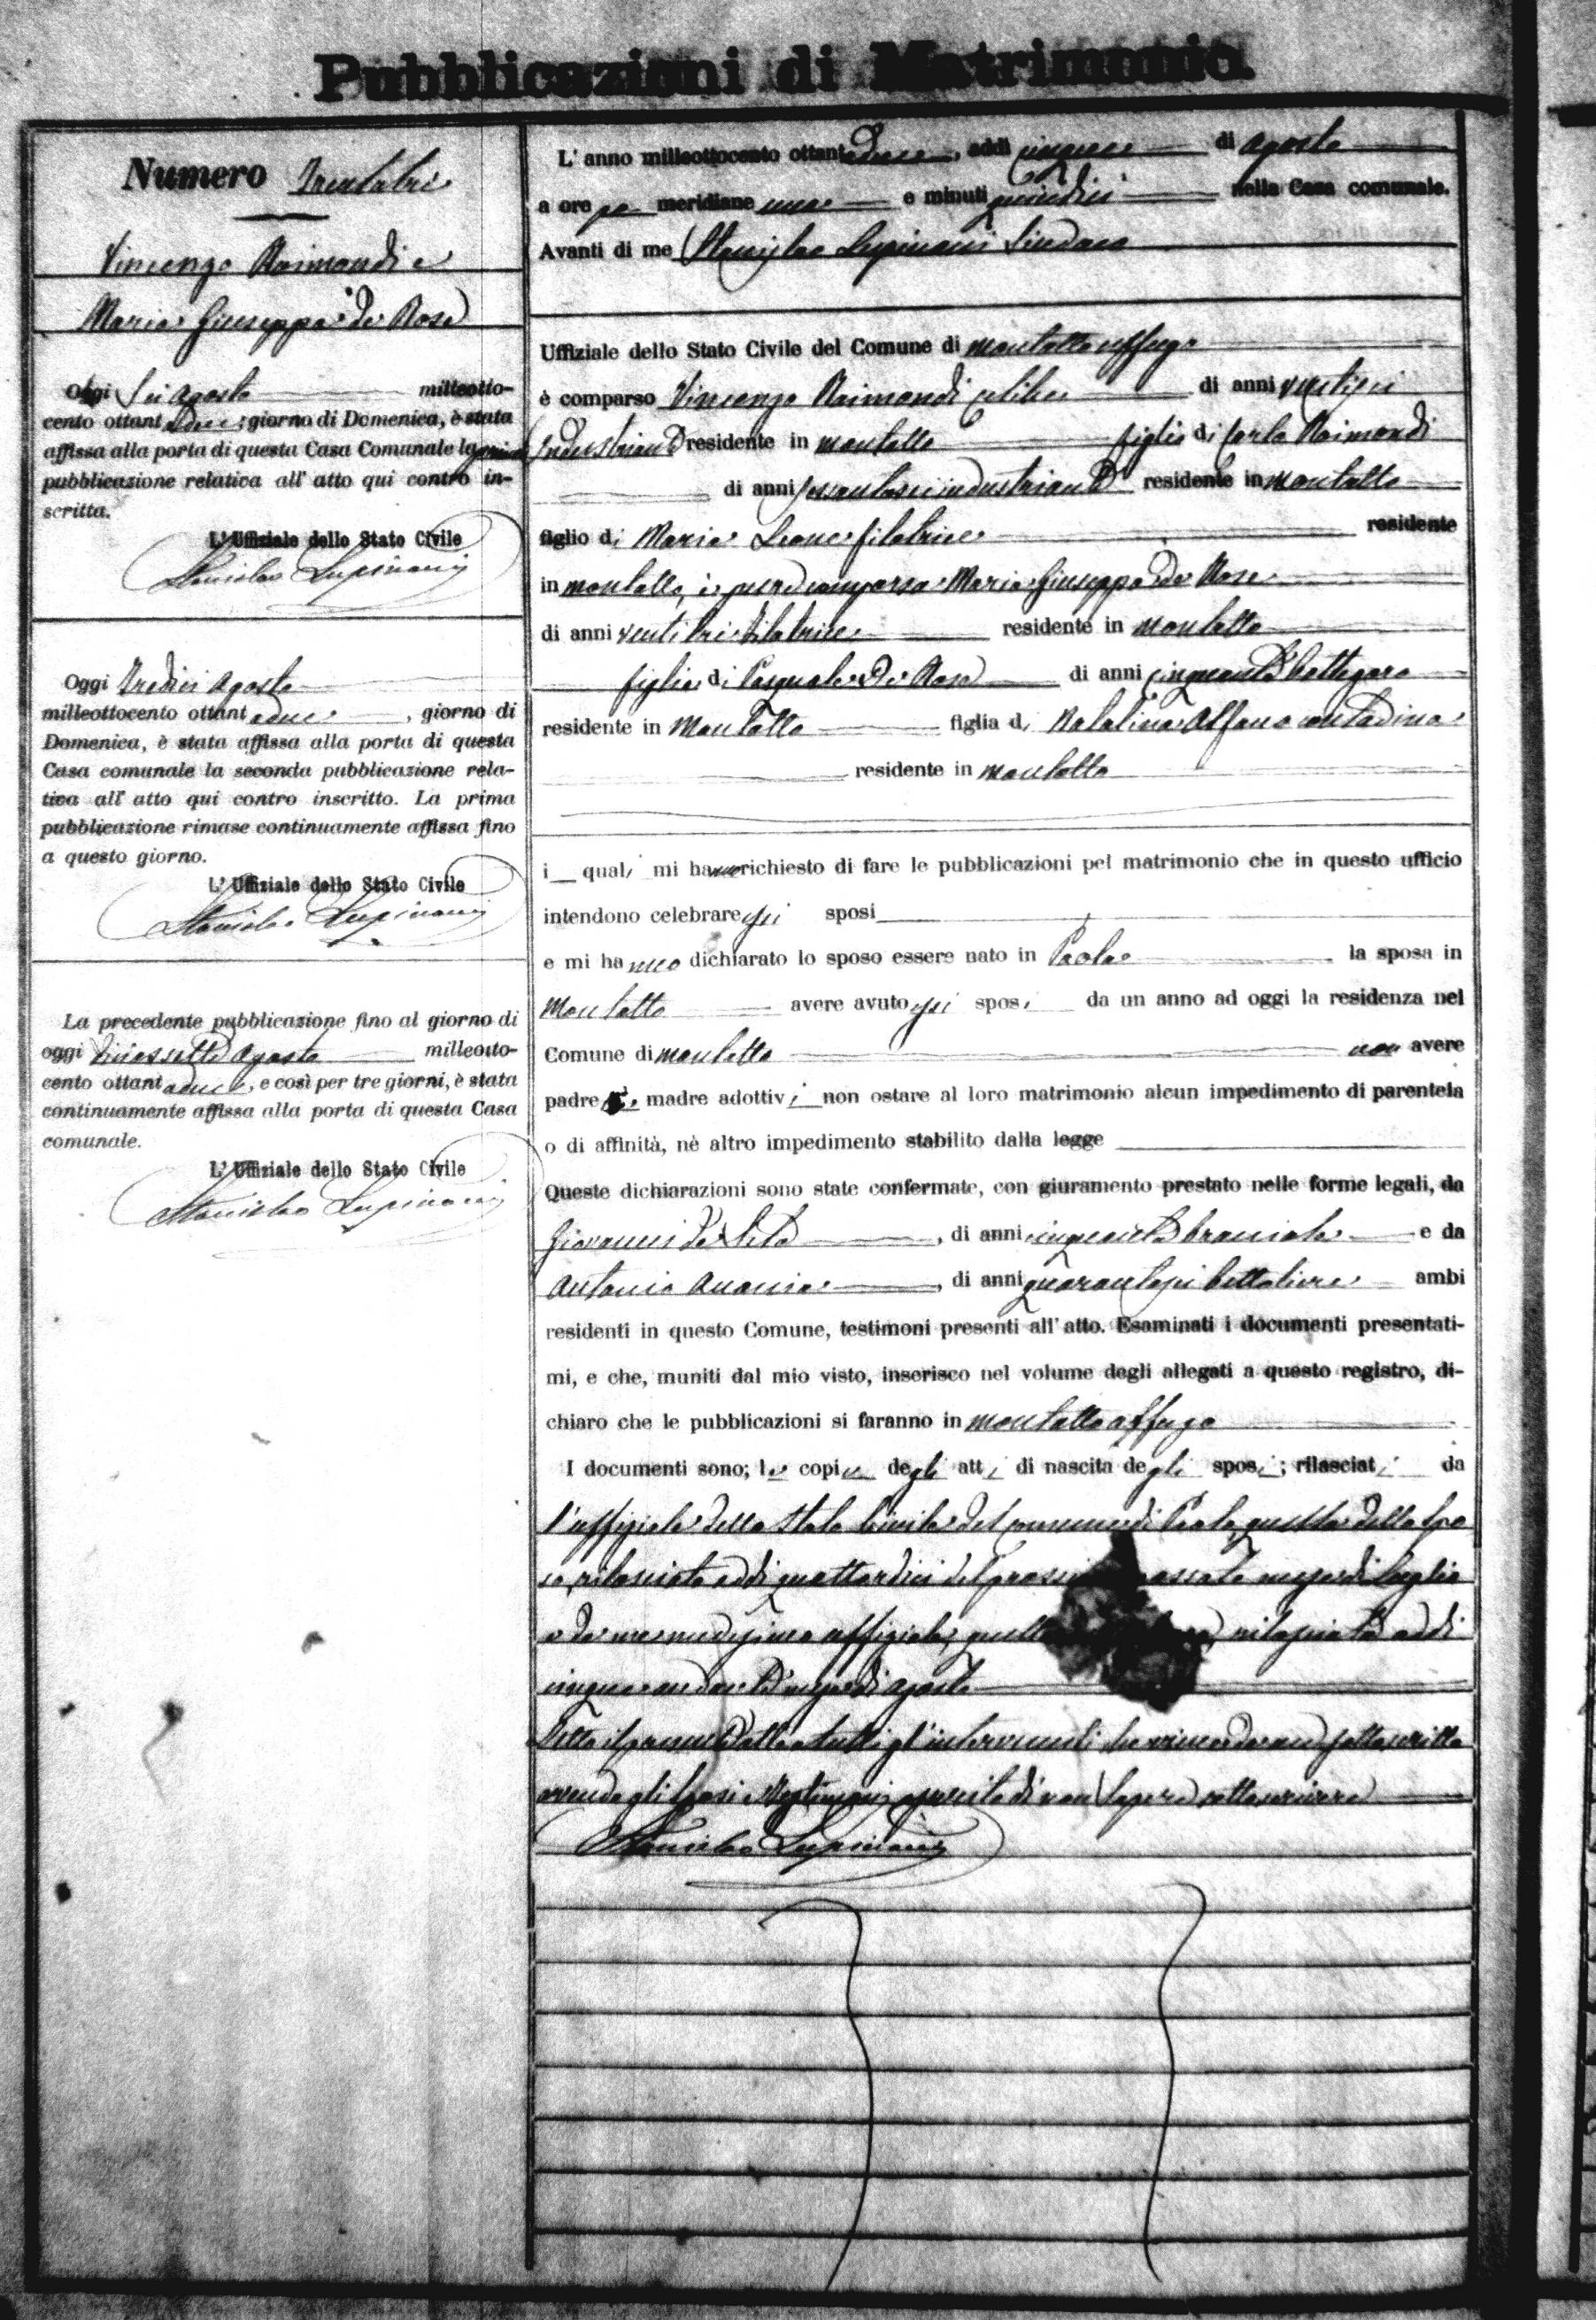 Pubblicazioni di Matrimonio
Numero Trentatrè
Vincenzo Raimondi e
Maria Giuseppa de Rose
Oggi sei agosto milleotto-
cento ottantadue, giorno di Domenica, è stata
affissa alla porta di questa Casa Comunale la prima
pubblicazione relativa all' atto qui contro in-
scritta.
L' Uffiziale dello Stato Civile
Stanislao Lupinacci
Oggi tredici agosto
milleottocento ottantadue, giorno di
Domenica, è stata affissa alla porta di questa
Casa comunale la seconda pubblicazione rela-
tiva all' atto qui contro inscritto. La prima
pubblicazione rimase continuamente affissa fino
a questo giorno.
L' Uffiziale dello Stato Civile
Stanislao Lupinacci
La precedente pubblicazione fino al giorno di
oggi diciassette agosto milleotto-
cento ottantadue, e così per tre giorni, è stata
continuamente affissa alla porta di questa Casa
comunale.
L' Uffiziale dello Stato Civile
Stanislao Lupinacci
L' anno milleottocento ottantadue, addì cinque di agosto
a ore po meridiane una e minuti quindici nella Casa comunale.
Avanti di me Stanislao Lupinacci Sindaco
Uffiziale dello Stato Civile del Comune di Montalto uffugo
è comparso Vincenzo Raimondi celibe di anni ventisei
industriante residente in Montalto figlio di Carlo Raimondi
di anni sessantasei industriante residente in Montalto
figlio di Maria Leone filatrice residente
in Montalto, è pure comparsa Maria Giuseppa de Rose
di anni ventitre filatrice residente in Montalto
figlia di Pasquale De Rose di anni cinquanta bottegaro
residente in Montalto figlia di Natalina Alfano contadina
residente in Montalto
i quali mi hanno richiesto di fare le pubblicazioni pel matrimonio che in questo ufficio
intendono celebrare essi sposi
e mi hanno dichiarato lo sposo essere nato in Paola la sposa in
Montalto avere avuto essi sposi da un anno ad oggi la residenza nel
Comune di Montalto non avere
padre e madre adottivi non ostare al loro matrimonio alcun impedimento di parentela
o di affinità, nè altro impedimento stabilito dalla legge
Queste dichiarazioni sono state confermate, con giuramento prestato nelle forme legali, da
Giovanni de , di anni cinquanta bracciale e da
Antonio Anania, di anni quarantasei bettoliere ambi
residenti in questo Comune, testimoni presenti all' atto. Esaminati i documenti presentati-
mi, e che, muniti dal mio visto, inserisco nel volume degli allegati a questo registro, di-
chiaro che le pubblicazioni si faranno in Montalto uffugo
I documenti sono; le copie degli atti di nascita degli sposi; rilasciati da
l'uffiziale dello Stato Civile del comune di Paola, quella dello spo
so, rilasciata addì quattordici del prossimo passato mese di luglio
e da me medesimo uffiziale, quella rilasciata addì
cinque andante mese di agosto
Letto il presente atto a tutti gl'intervenuti, ho vieme da me sottoscritto
avendo gli sposi e testimoni asserito di non sapere sottoscrivere
Stanislao Lupinacci